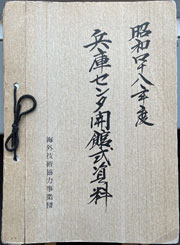 昭和四十八年度
兵庫センタ開館式資料
海外技術協力事業団